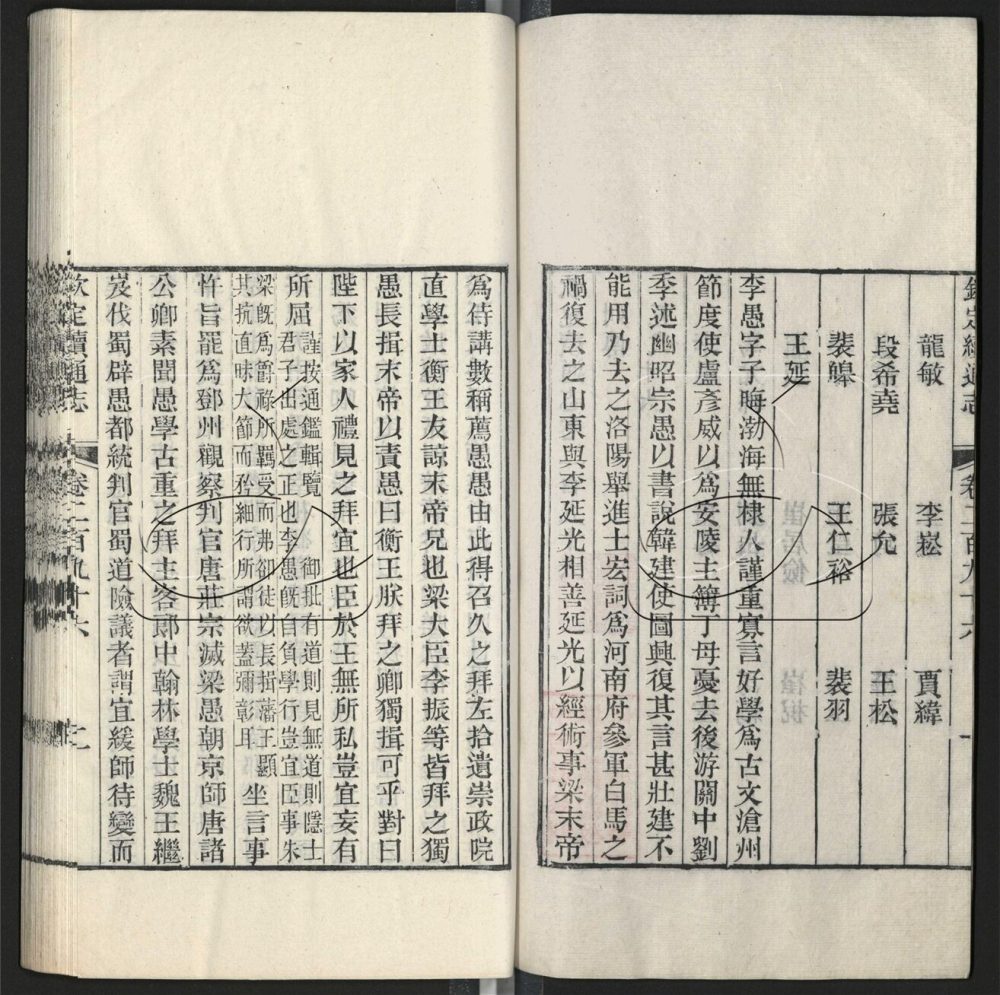 欽定續通志　卷二百九十六　一
龍敏　李崧　賈緯
段希堯　張允　王松
裴皞　王仁裕　裴羽
王延
李愚字子晦渤海無棣人謹重寡言好學爲古文滄州
節度使盧彥威以爲安陵主簿丁母憂去後游關中劉
季述幽昭宗愚以書說韓建使圖興復其言甚壯建不
能用乃去之洛陽舉進士宏詞爲河南府參軍白馬之
禍復去之山東與李延光相善延光以經術事梁末帝
爲侍講數稱薦愚愚由此得召久之拜左拾遺崇政院
直學士衡王友諒末帝兄也梁大臣李振等皆拜之獨
愚長揖末帝以責愚曰衡王朕拜之卿獨揖可乎對曰
陛下以家人禮見之拜宜也臣於王無所私豈宜妄有
所屈謹按通鑑輯覽　御批有道則見無道則隱士
君子出處之正也李愚旣自負學行豈宜臣事朱
梁旣爲爵祿所羈受而弗卻徒以長揖藩王顯
其抗直昧大節而矜細行所謂欲蓋彌彰耳坐言事
忤旨罷爲鄧州觀察判官唐莊宗滅梁愚朝京師唐諸
公卿素聞愚學古重之拜主客郎中翰林學士魏王繼
岌伐蜀辟愚都統判官蜀道險議者謂宜緩師待變而
欽定續通志　卷二百九十六